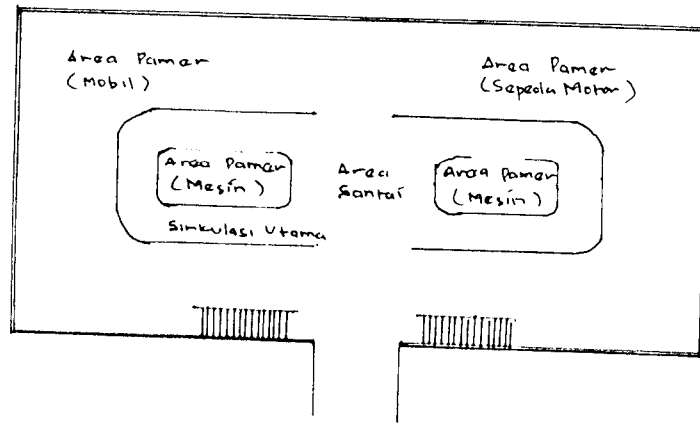 Area Pamer
(Mobil)
Area Pamer
(Sepeda Motor)
Area Pamer
(Mesin)
Area
Santai
Area Pamer
(Mesin)
Sirkulasi Utama